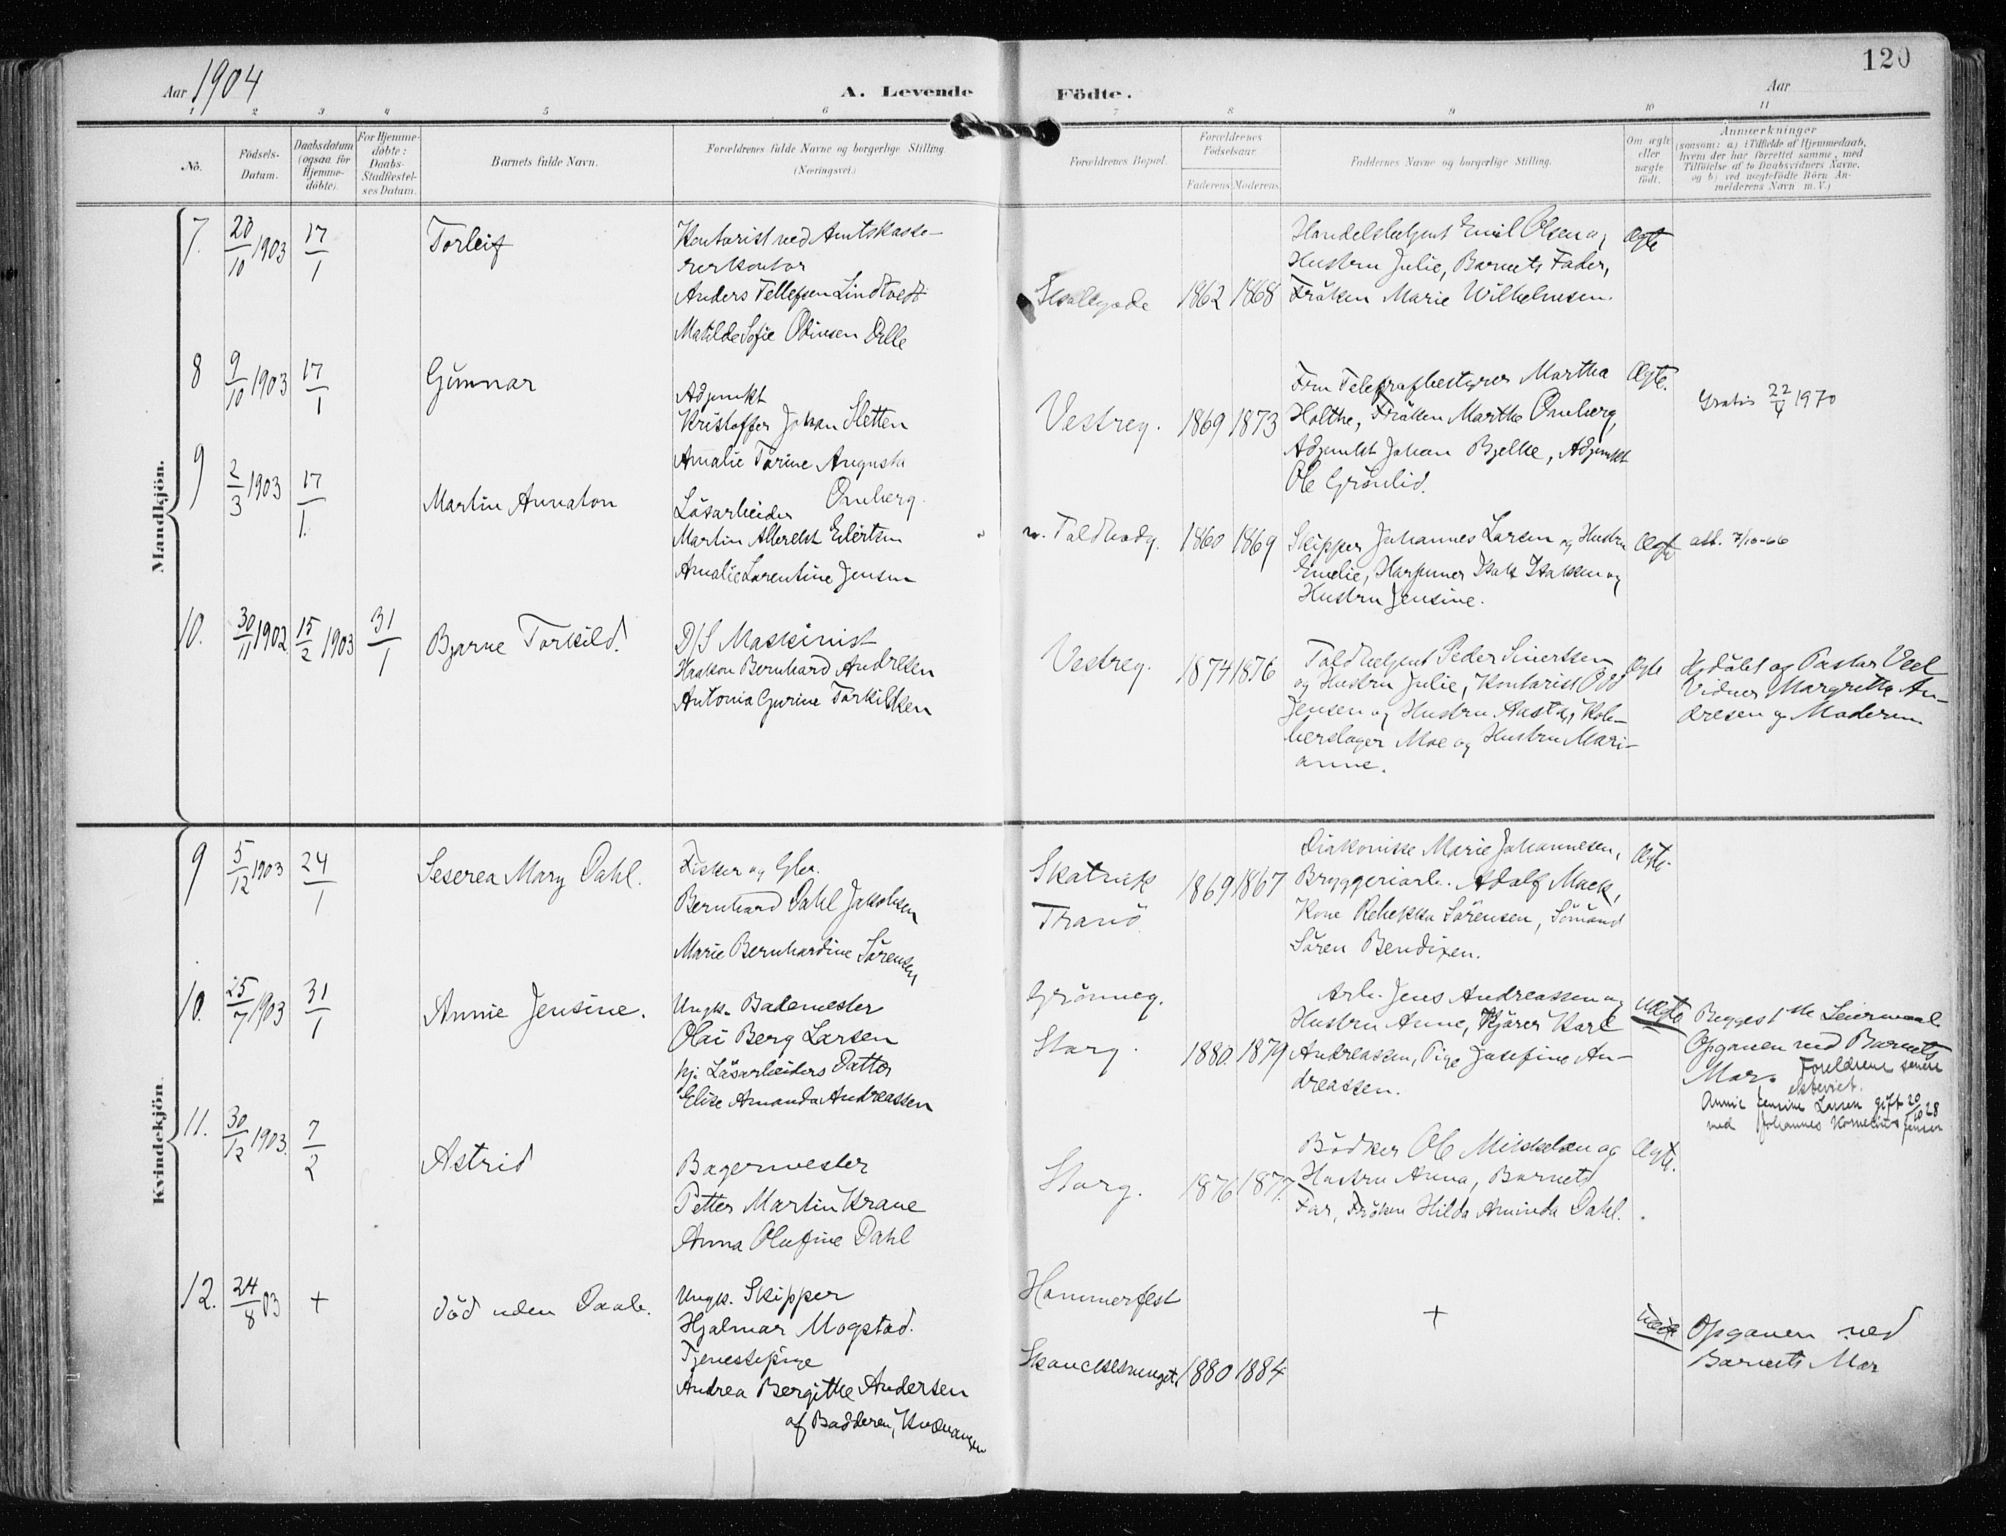 120
Aar 1904
A. Levende Födte.
Aar
1 2 3 4 5 6 7 8 9 10 11
No.
Födsels-Datum.
Daabsdatum (ogsaa for Hjemme-döbte).
For Hjemme-döbte: Daabs-Stadfæstel-ses Datum.
Barnets fulde Navn.
Forældrenes fulde Navne og borgerlige Stilling. (Næringsvei.)
Forældrenes Bopæl.
Forældrenes Födselsaar.
Faderens Moderens
Faddernes Navne og borgerlige Stilling.
Om ægte eller uægte födt.
Anmærkninger
(saasom: a) i Tilfælde af Hjemmedaab, hvem der har forrettet samme, med Tilföielse af to Daabsvidners Navne. og b) ved uægtefödte Börn An-melderens Navn m. V.)
Mandkjön.
7. 20/10 1903 17/1 Torleif
Kontorist ved Amtskasse-
rerkontor
Anders Tellefsen Lindtvedt
Matilde Sofie Odinsen Delle
1862 1868
Handelsbetjent Emil Olsen og
Hustru Julie, Barnets Fader,
Fröken Marie Wilhelmsen.
Ægte
8 9/10 1903 17/1 Gunnar
Adjunkt
Kristoffer Johan Sletten
Amalie Torine Augusta
Omberg.
Vestreg. 1869 1873
Fru Telegrafbestyrer Martha
Holthe, Fröken Marthe Omberg,
Adjunkt Johan Bjelke, Adjunkt
Ole Grönlid.
Ægte.
Gratis 22/4 1970
9 2/3 1903 17/1. Martin Annaton
Lösarbeider
Martin Albrekt Eilertsen
Amalie Lorentine Jensen
n. Toldbodg. 1860 1869
Skipper Johannes Larsen og Hustru
Emelie, Harpuner Isak Isaksen og
Hustru Jensine.
Ægte
att. 7/10-66
10. 30/11 1902 15/2 1903 31/1 Bjarne Torkild.
D/S Maskinist
Haakon Bernhard Andresen
Antonia Gurine Torkildsen
Vestreg. 1874 1876
Toldbetjent Peder Sivertsen
og Hustru Julie, Kontorist Odd
Jensen og Hustru Aasta, Kob-
berslager Moe og Hustru Mari-
anne.
Ægte
Hjdöbt af Pastor Veel
Vidner Margrethe An-
dresen og Moderen
Kvindekjön.
9 5/12 1903 24/1 Seserea Mary Dahl.
Fisker og Gbr.
Bernhard Dahl Jakobsen
Marie Bernhardine Sörensen
Tranö.
1869 1867
Diakonisse Marie Johannesen,
Bryggeriarb. Adolf Mack,
Kone Rebekka Sörensen, Sömand
Sören Bendixen.
Ægte.
10. 25/7 1903 31/1 Annie Jensine.
Ungk. Bademester
Olai Berg Larsen
hj. Lösarbeiders Datter
Elise Amanda Andreassen
Grönneg.
Storg. 1880. 1879
Arb. Jens Andreassen og
Hustru Anne, Kjörer Karl
Andreassen, Pige Josefine An-
dreassen.
uægte
Begges 1ste Leiermaal
Opgaven ved Barnets
Mor. Forældrene senere
ekteviet.
Annie Jensine Larsen gift 20/10 28
med Johannes Kornelius Jensen
11. 30/12 1903. 7/2 Astrid
Bagermester
Petter Martin Krane
Anna Olufine Dahl
Storg. 1876 1877.
Bödker Ole Mikkelsen og
Hustru Anna, Barnets
Far, Fröken Hilda Aminda Dahl.
Ægte.
12. 24/8 03 + död uden Daab.
Ungk. Skipper
Hjalmar Mogstad.
Tjenestepige
Andrea Bergitte Andersen
af Badderen, Kvænangen
Hammerfest
1880 1884
+
uægte
Opgaven ved
Barnets Mor